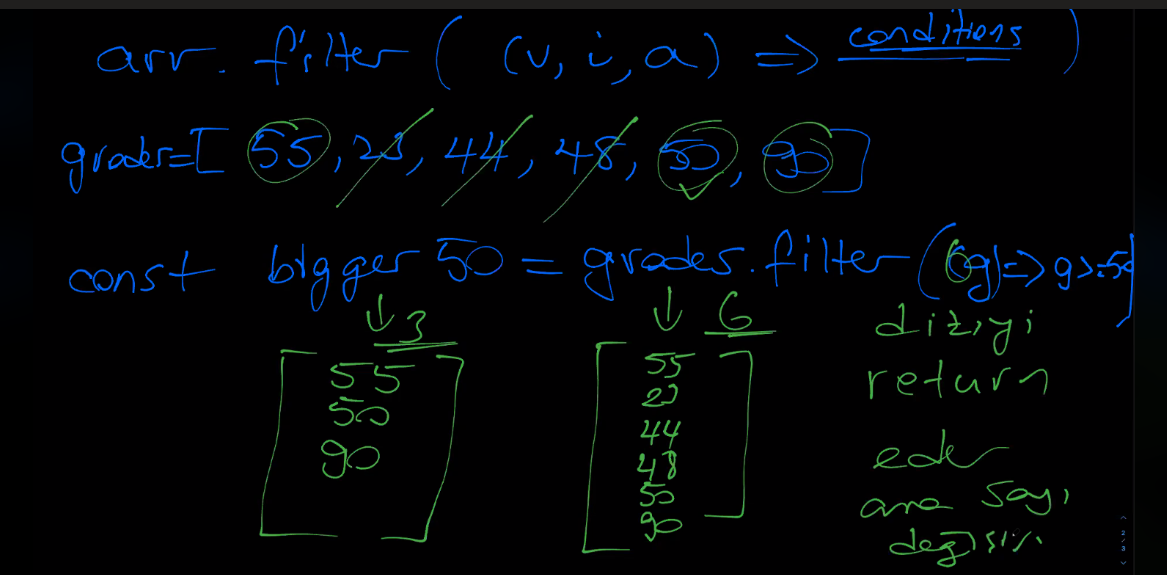 arr. filter ( (v, i, a) => conditions )
grades=[ 55, 23, 44, 48, 50, 90]
const bigger 50 = grades. filter ((g)=> g>=50)
↓ 3
55
50
90
↓ 6
55
23
44
48
50
90
diziyi
return
eder
ama sayı
değişir.